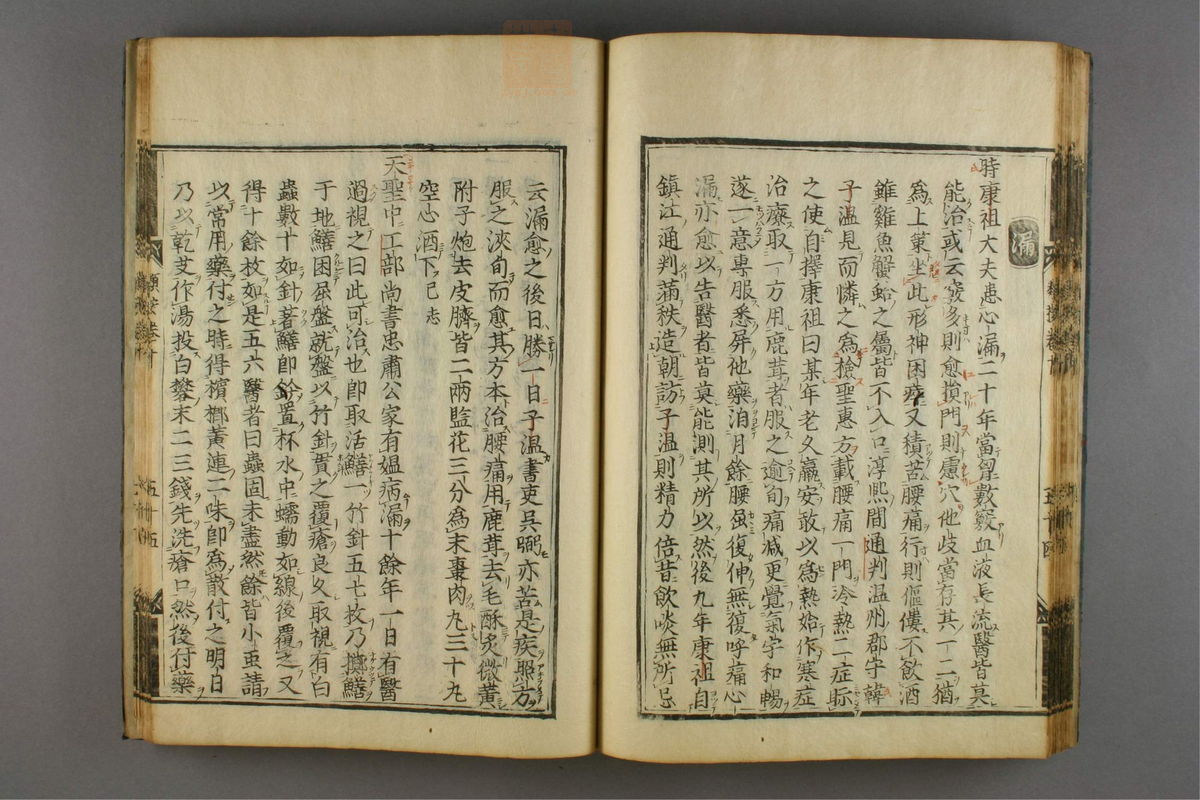 漏
時康祖大夫患心漏二十年當胷數竅血液長流醫皆莫
能治或云竅多則愈損門則慮穴他歧當存其一二猶
為上策坐此形神困瘁又積苦腰痛行則傴僂不飲酒
雖雞魚蟹蛤之屬皆不入口淳熙間通判温州郡守韓
子温見而憐之為檢聖惠方載腰痛一門冷熱二症眎
之使自擇康祖曰某年老久羸安敢以為熱始作寒症
治療取一方用鹿茸者服之逾旬痛減更覺氣宇和暢
遂一意專服悉屏他藥洎月餘腰虽復伸無復呼痛心
漏亦愈以告醫者皆莫能測其所以然後九年康祖自
鎮江通判滿秩造朝訪子温則精力倍昔飲啖無所忌
云漏愈之後日勝一日子温書吏吳弼亦苦是疾照方
服之浹旬而愈其方本治腰痛用鹿茸去毛酥炙微黃
附子炮去皮臍皆二兩監花三分為末棗肉丸三十丸
空心酒下已志
天聖中工部尚書忠肅公家有媪病漏十餘年一日有醫
過視之曰此可治也卽取活鱔一竹針五七枚乃擲鱔
于地鱔困屈盤就盤以竹針貫之覆瘡良久取視有白
蟲數十如針著鱔卽令置杯水中蠕動如線後覆之又
得十餘枚如是五六醫者曰蟲固未盡然餘皆小虫請
以常用藥付之時得檳榔黃連二味卽為散付之明日
乃以乾艾作湯投白礬末二三錢先洗瘡口然後付藥